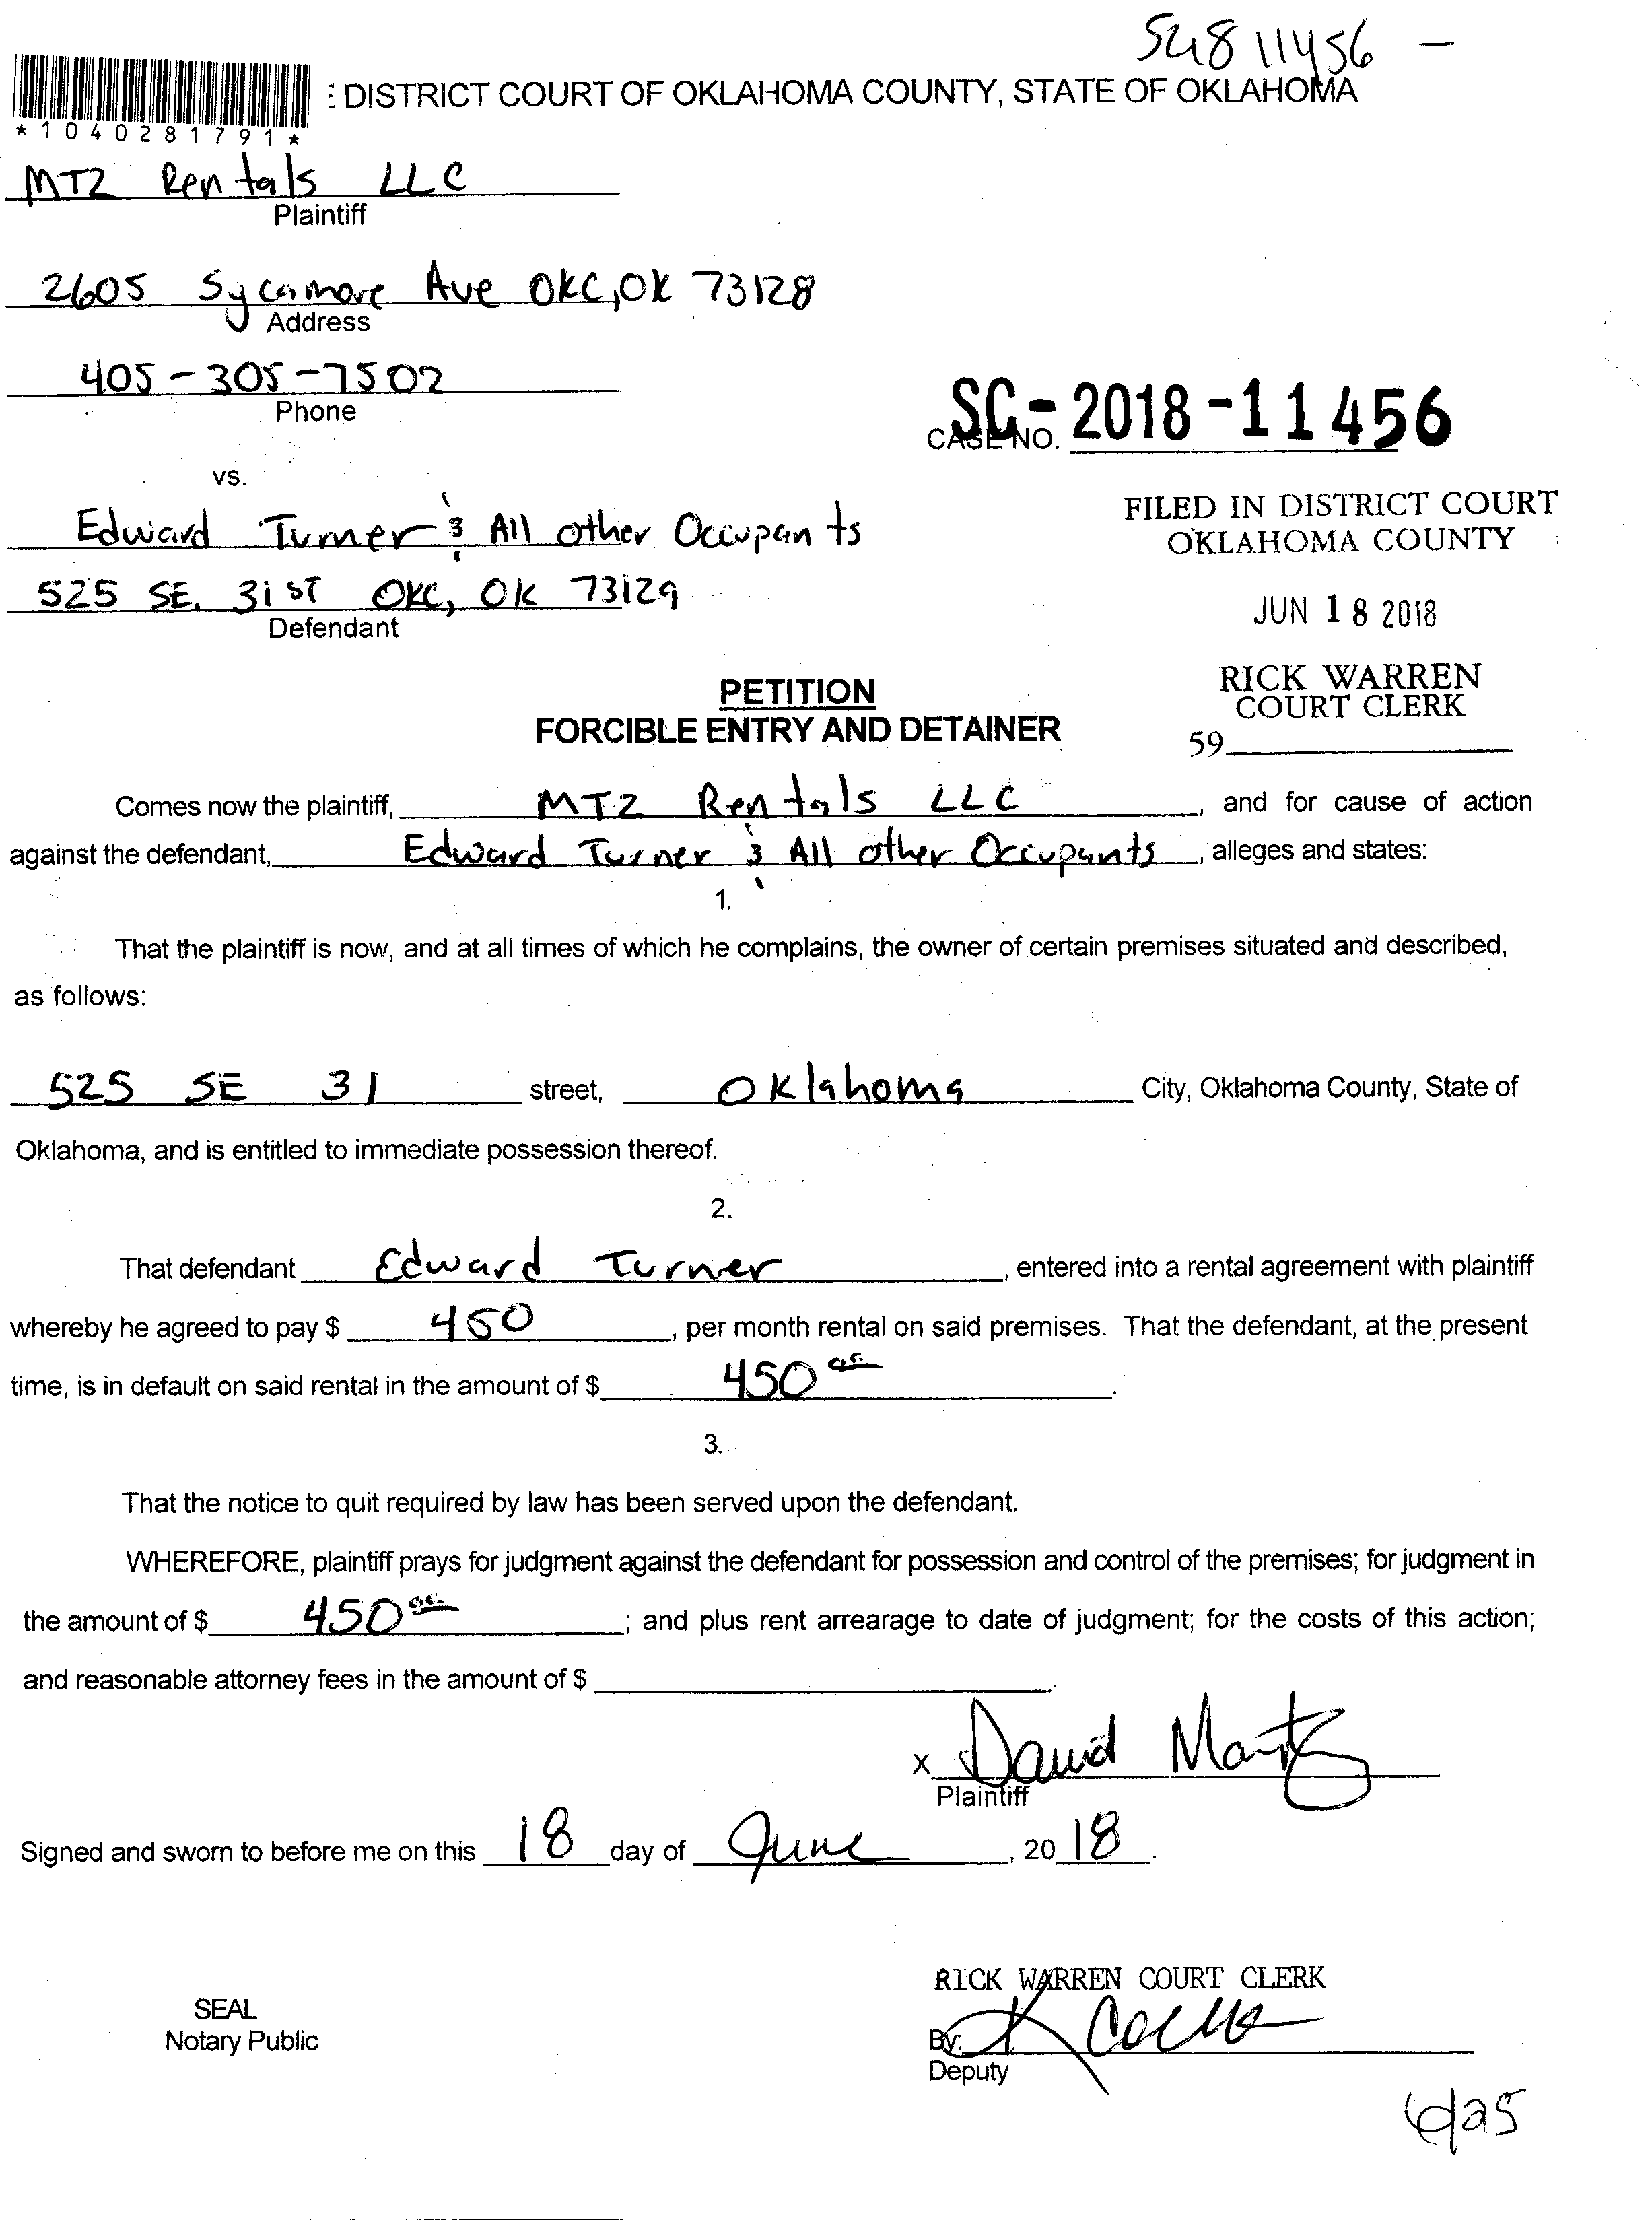 SC1811456 -
: DISTRICT COURT OF OKLAHOMA COUNTY, STATE OF OKLAHOMA
*1040281791*
MTZ Rentals LLC
Plaintiff
2605 Sycamore Ave OKC, OK 73128
Address
405-305-7502
Phone
CASE NO. SC-2018-11456
vs.
Edward Turner & All other Occupants
525 SE. 31ST OKC, OK 73129
Defendant
FILED IN DISTRICT COURT
OKLAHOMA COUNTY
JUN 18 2018
RICK WARREN
COURT CLERK
59
PETITION
FORCIBLE ENTRY AND DETAINER
Comes now the plaintiff, MTZ Rentals LLC, and for cause of action
against the defendant, Edward Turner & All other Occupants, alleges and states:
1.
That the plaintiff is now, and at all times of which he complains, the owner of certain premises situated and described,
as follows:
525 SE 31 street, Oklahoma City, Oklahoma County, State of
Oklahoma, and is entitled to immediate possession thereof.
2.
That defendant Edward Turner, entered into a rental agreement with plaintiff
whereby he agreed to pay $ 450, per month rental on said premises. That the defendant, at the present
time, is in default on said rental in the amount of $ 450 00.
3.
That the notice to quit required by law has been served upon the defendant.
WHEREFORE, plaintiff prays for judgment against the defendant for possession and control of the premises; for judgment in
the amount of $ 450 00; and plus rent arrearage to date of judgment; for the costs of this action;
and reasonable attorney fees in the amount of $ .
x David
Plaintiff
Signed and sworn to before me on this 18 day of June, 2018.
SEAL
Notary Public
RICK WARREN COURT CLERK
By: K
Deputy
6/25